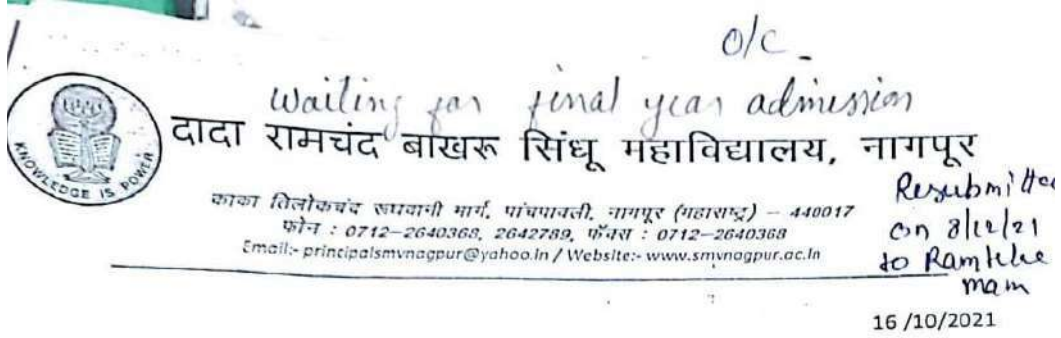 O/C
Waiting for final year admission
KNOWLEDGE IS POWER
दादा रामचंद बाखरू सिंधू महाविद्यालय, नागपूर
काका तिलोकचंद रूघवानी मार्ग, पांचपावली, नागपूर (महाराष्ट्र) – 440017
फोन : 0712–2640368, 2642789, फॅक्स : 0712–2640368
Email:- principalsmvnagpur@yahoo.in / Website:- www.smvnagpur.ac.in
Resubmitted
on 8/12/21
to Ramteke
mam
16 /10/2021